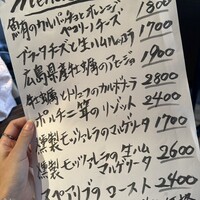 Menu
鮪のカルパッチョとオレンジ 1800
ペコリーノチーズ
ブラータチーズと生ハム 1700
広島県産牡蠣のアヒージョ 1900
牡蠣とトリュフのカルボナーラ 2800
ポルチーニ茸のリゾット 2400
燻製モッツァレラのマルゲリータ 1700
燻製モッツァレラの生ハム 2600
マルゲリータ
スペアリブのロースト 2400